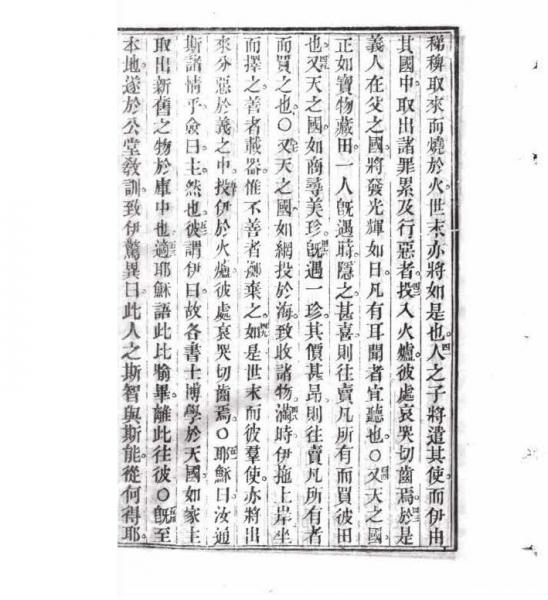 稊稗取來而燒於火世末亦將如是也人之子將遣其使而伊由
其國中取出諸罪累及行惡者投入火爐彼處哀哭切齒焉於是
義人在父之國將發光輝如日凡有耳聞者宜聽也○又天之國
正如寶物藏田一人旣遇時隱之甚喜則往賣凡所有而買彼田
也又天之國如商尋美珍旣遇一珍其價甚昂則往賣凡所有者
而買之也○又天之國如網投於海致收諸物滿時伊拖上岸坐
而擇之善者載器惟不善者擲棄之如是世末而彼羣使亦將出
來分惡於義之中投伊於火爐彼處哀哭切齒焉○耶穌曰汝通
斯諸情乎僉曰主然也彼謂伊曰故各書士博學於天國如家主
取出新舊之物於庫中也適耶穌語此比喻畢離此往彼○旣至
本地遂於公堂敎訓致伊驚異曰此人之斯智與斯能從何得耶